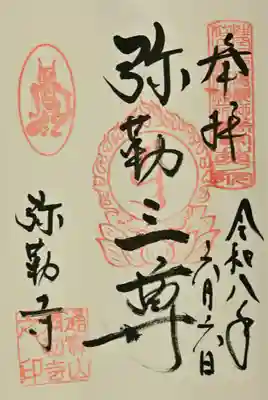 奉拝
令和八年
六月六日
弥勒三尊
弥勒寺